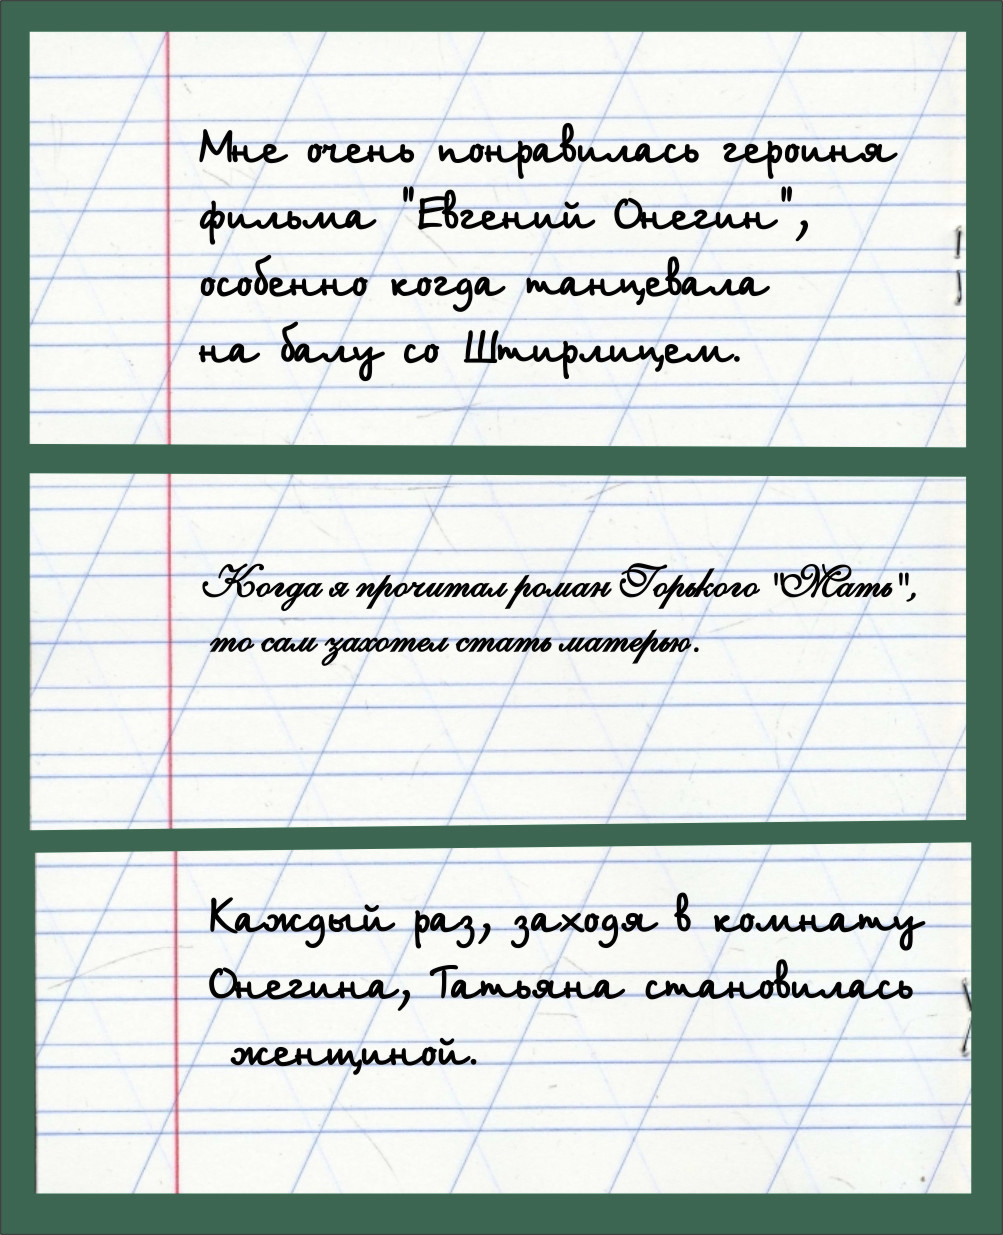 Мне очень понравилась героиня
фильма "Евгений Онегин",
особенно когда танцевала
на балу со Штирлицем.
Когда я прочитал роман Горького "Мать",
то сам захотел стать матерью.
Каждый раз, заходя в комнату
Онегина, Татьяна становилась
женщиной.